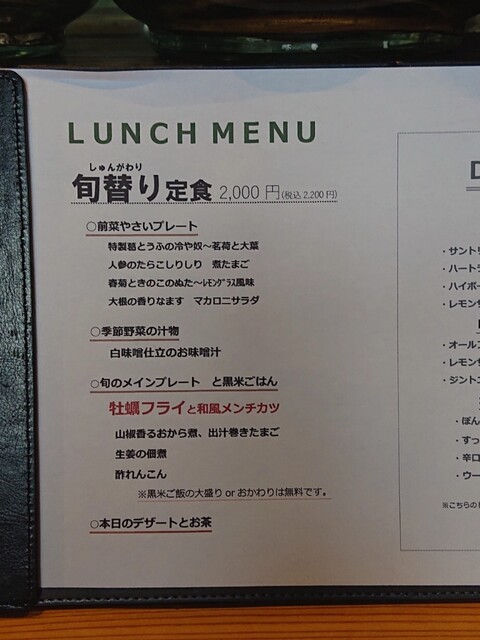 LUNCH MENU
しゅんがわり
旬替り定食 2,000 円(税込 2,200 円)
○前菜やさいプレート
特製葛とうふの冷や奴～茗荷と大葉
人参のたらこしりしり　煮たまご
春菊ときのこのぬた～ﾚﾓﾝｸﾞﾗｽ風味
大根の香りなます　マカロニサラダ
○季節野菜の汁物
白味噌仕立のお味噌汁
○旬のメインプレート　と黒米ごはん
牡蠣フライと和風メンチカツ
山椒香るおから煮、出汁巻きたまご
生姜の佃煮
酢れんこん
※黒米ご飯の大盛り or おかわりは無料です。
○本日のデザートとお茶
D
・サントリ
・ハートラ
・ハイボー
・レモンサ
・オールフ
・レモンサ
・ジントニ
・ぽん
・すっ
・辛口
・ウー
※こちらの